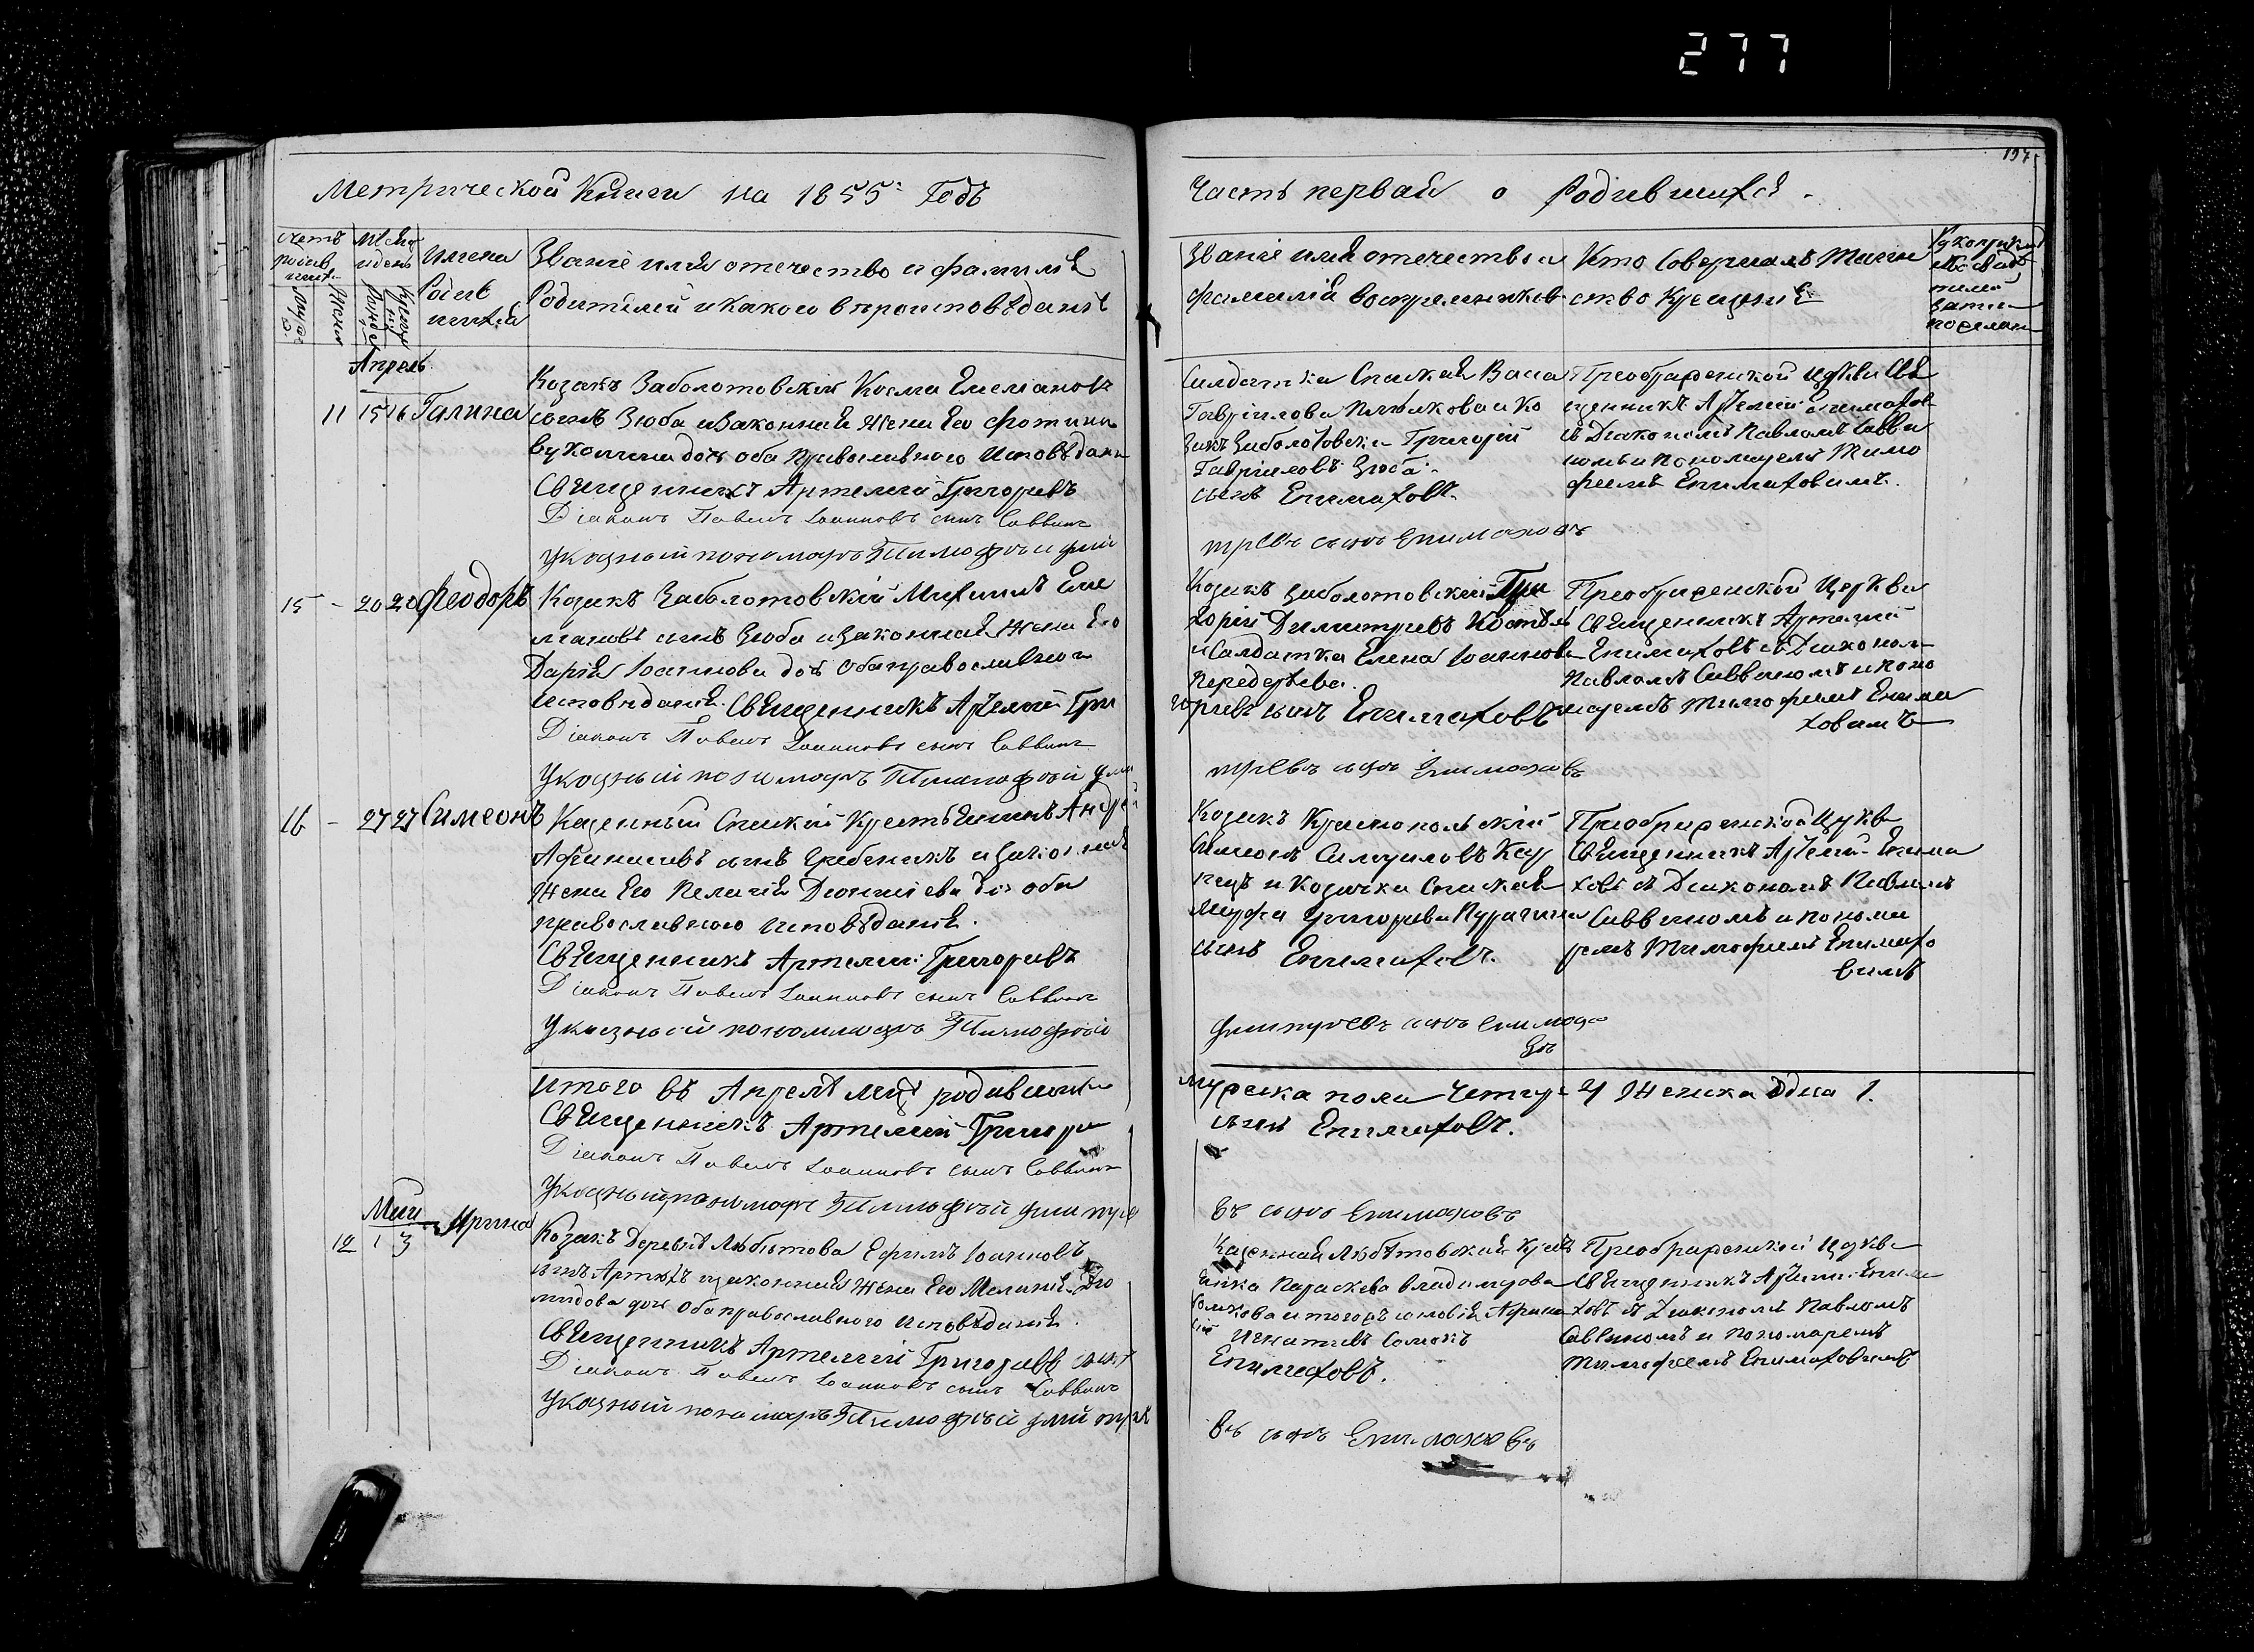 277
197
Метрической Книги на 1855: Годъ
Часть первая о Родившихся.
Имена
Родив
шихся
Званіе имя отечество и фамилія
Родителей и какого вѣроисповѣданія
Званіе имя отечество и
фамилія восприемниковъ
Кто Совершалъ Таин
ство Крещенія
Апрель
11 15 16 Галина
Козакъ Заболотовскій Косма Емеліановъ
сынъ Зюба и Законная Жена Его Фотина
дочь оба Православного Исповѣданія
Священникъ Артемій Григоріевъ
Діаконъ Павелъ Іоанновъ сынъ Саввинъ
Указный пономарь Тимофей
Солдатка Спаская Васса
Гавріилова и Ко
закъ Григорій
Гавриловъ Зюба.
сынъ Епимаховъ.
тріевъ сынъ Епимаховъ
Преображенской Церкви Свя
щенникъ Артемій Епимахов
съ Діакономъ Павломъ Савви
номъ и Пономаремъ Тимо
феемъ Епимаховымъ.
15 - 20 20 Феодоръ
Козакъ Заболотовскій Михаилъ Еме
ліановъ сынъ Зюба и Законная Жена Его
Дарія Іоаннова дочь оба православного
исповѣданія. Священникъ Артемій Гри
Діаконъ Павелъ Іоанновъ сынъ Саввинъ
Указный пономарь Тимофей
Козакъ Заболотовскій Гри
горій Димитріевъ
и Солдатка Елена Іоаннова
горіевъ сынъ Епимаховъ
тріевъ сынъ Епимаховъ
Преображенской Церкви
Священникъ Артемій
Епимаховъ съ Діакономъ
Павломъ Саввиномъ и поно
маремъ Тимофеемъ Епима
ховымъ
16 - 27 27 Симеонъ
Казенный Спаскій Крестьянинъ Андрей
Афанасіевъ сынъ Гребеникъ и Законная
Жена Его Пелагія Діонисіева дочь оба
православного исповѣданія.
Священникъ Артемій Григоріевъ
Діаконъ Павелъ Іоанновъ сынъ Саввинъ
Указный пономарь Тимофей
Козакъ Краснопольскій
Симеонъ Самуиловъ
и Козачка Спаская
Марфа Григорьева
сынъ Епимаховъ.
Димитріевъ сынъ Епимахо
въ
Преображенской Церкви
Священникъ Артемій Епима
ховъ съ Діакономъ Павломъ
Саввиномъ и понома
ремъ Тимофеемъ Епимахо
вымъ
Итого въ Апрелѣ родившихся
мужеска пола Четыре 4 Женска Одна 1.
Священникъ Артемій Григорі
сынъ Епимаховъ.
Діаконъ Павелъ Іоанновъ сынъ Саввинъ
Указный пономарь Тимофей Димитріе
въ сынъ Епимаховъ
Май
12 1 3 Ирина
Козакъ Деревни Любитова Ефимъ Іоанновъ
сынъ и законная Жена Его Меланія Діо
мидова дочь оба православного исповѣданія.
Священникъ Артемій Григоріевъ сынъ
Діаконъ Павелъ Іоанновъ сынъ Саввинъ
Указный пономарь Тимофей Димитріе
Казенная Любѣтовская Кресть
янка Параскева Владимірова
Игнатіевъ
Епимаховъ.
въ сынъ Епимаховъ
Преображенской Церкви
Священникъ Артемій Епима
ховъ съ Діакономъ Павломъ
Саввиномъ и Пономаремъ
Тимофеемъ Епимаховымъ